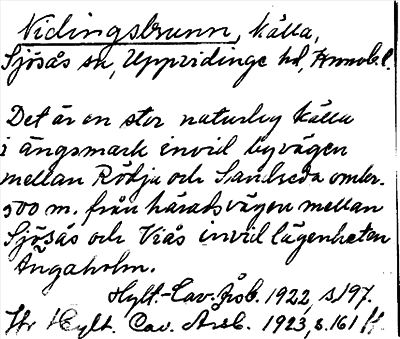 Vidingsbrunn, källa,
Sjösås sn, Uppvidinge hd, Kronobl.
Det är en stor naturlig källa
i ängsmark invid byvägen
mellan Rödja och Sandreda omkr.
500 m. från häradsvägen mellan
Sjösås och Viås invid lägenheten
Ängaholm.
Hylt.-Cav. Årsb. 1922, s. 197.
Hylt. Cav. Årsb. 1923, s. 161 ff.